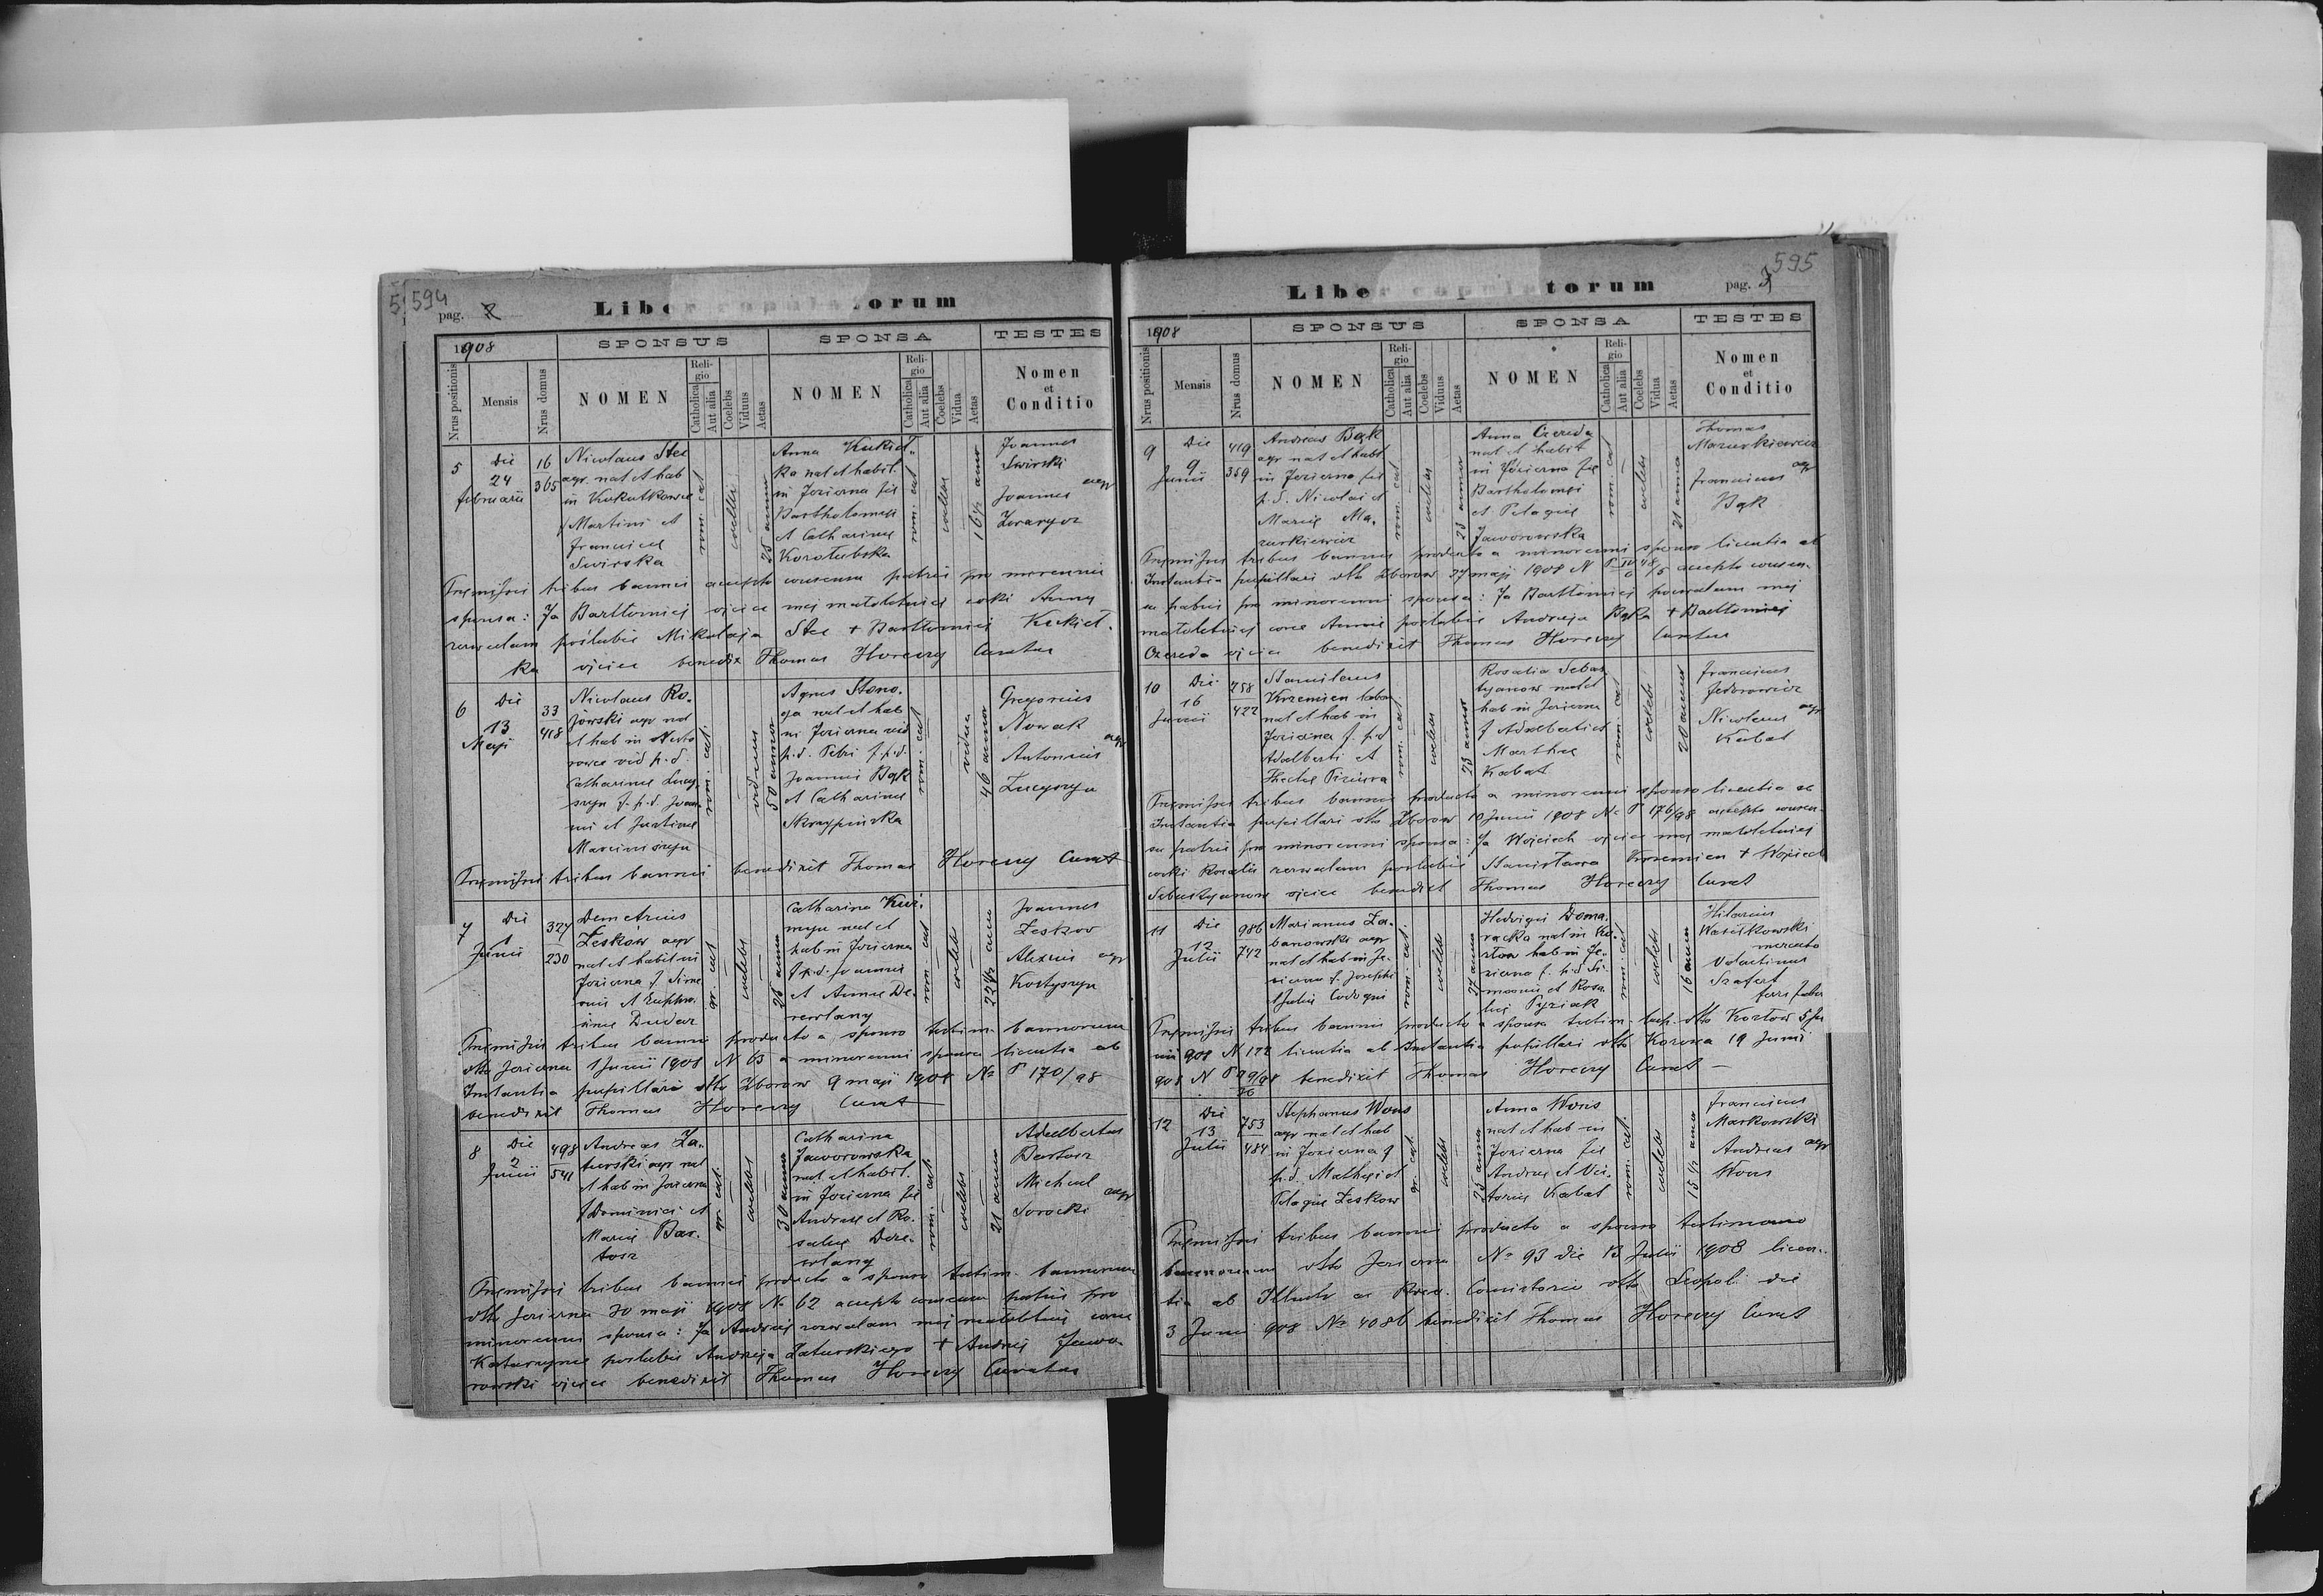 594
pag. 2
Liber copulatorum
1908
SPONSUS
SPONSA
TESTES
Nrus positionis
Mensis
Nrus domus
NOMEN
Religio
Catholica
Aut alia
Coelebs
Viduus
Aetas
NOMEN
Religio
Catholica
Aut alia
Coelebs
Vidua
Aetas
Nomen
et
Conditio
5
Die
24
februarii
16
365
Nicolaus Stec
agr. nat et hab
in
f Martini et
Franciscae
Swirska
rom. cat
coelebs
25 annor
Anna Kukieł-
ka nat et habit.
in Jezierna fil
Bartholomaei
et Catharinae
rom. cat
coelebs
16½ annor
Joannes
Swirski
Joannes agr
Praemissis tribus bannis accepto consensu patris pro minorenni
sponsa: Ja Bartłomiej ojciec mej małoletniej córki Anny
zezwalam poślubić Mikołaja Stec + Bartłomiej Kukieł-
ka ojciec benedix Thomas Horeczy Curatus
6
Die
13
Maji
33
418
Nicolaus Ro-
jowski agr nat
et hab in
vid p.d.
Catharinae
f.p.d. Joan
nis et Justinae
rom. cat.
viduus
50 annor
Agnes Stono-
ga nat et hab
in Jezierna vid
p.d. Petri f.p.d.
Joannis Bąk
et Catharinae
Skrzypińska
rom. cat
vidua
46 annor
Gregorius
Nowak
Antonius agr
Praemissis tribus bannis benedixit Thomas Horeczy Curat
7
Die
1
Junii
327
230
Demetrius
Leskow agr
nat et habit in
Jezierna f. Sime
onis et Euphro-
sinae Dudar
gr. cat
coelebs
25 anno
Catharina
nat et
hab in Jezierna
f p.d. Joannis
et Annae De-
rewlany
rom. cat
coelebs
22½ anno
Joannes
Leskow
Alexius agr
Praemissis tribus bannis producto a sponso testim. bannorum
dtto Jezierna 1 Junii 1908 N 63 a minorenni sponsa licentia ab
Instantia pupillari dtto Zborow 9 maji 1908 No P 170/98
benedixit Thomas Horeczy Curat
8
Die
2
Junii
498
541
Andreas Za-
turski agr nat
et hab in Jezierna
f Dominici et
Mariae Bar-
tosz
gr. cat.
coelebs
30 anno
Catharina
Jaworowska
nat et habit.
in Jezierna fil
Andreae et Ro-
saliae Dere-
wlany
rom. cat.
coelebs
21 annor
Adalbertus
Bartosz
Michael agr
Sorocki
Praemissis tribus bannis producto a sponso testim. bannorum
dtto Jezierna 30 maji 1908 No 62 accepto consensu patris pro
minorenni sponsa: Ja Andrzej zezwalam mej małoletniej córce
Katarzynie poślubić Andrzeja Zaturskiego + Andrzej Jawo-
rowski ojciec benedixit Thomas Horeczy Curatus
595
pag. 3
Liber copulatorum
1908
SPONSUS
SPONSA
TESTES
Nrus positionis
Mensis
Nrus domus
NOMEN
Religio
Catholica
Aut alia
Coelebs
Viduus
Aetas
NOMEN
Religio
Catholica
Aut alia
Coelebs
Vidua
Aetas
Nomen
et
Conditio
9
Die
9
Junii
419
359
Andreas Bąk
agr nat et habit
in Jezierna fil
p.d. Nicolai et
Mariae Ma-
zurkiewicz
rom. cat
coelebs
23 annor
Anna Czereda
nat et habit
in Jezierna fil
Bartholomaei
et Pelagiae
Jaworowska
rom. cat
coelebs
21 anno
Thomas
Mazurkiewicz
Franciscus agr
Bąk
Praemissis tribus bannis producto a minorenni sponso licentia ab
Instantia pupillari dtto Zborow 27 maji 1908 N accepto consen-
su patris pro minorenni sponsa: Ja Bartłomiej pozwalam mej
małoletniej córce Annie poślubić Andrzeja Bąka + Bartłomiej
Czereda ojciec benedixit Thomas Horeczy Curatus
10
Die
16
Junii
258
422
Stanislaus
Krzemien labor.
nat et hab in
Jezierna f. p.d
Adalberti et
Theclae
rom. cat
coelebs
23 annor
Rosalia Sebas
tyanow nat et
hab in Jezierna
f Adalberti et
Marthae
Kabat
rom. cat
coelebs
20 annor
Franciscus
Fedorowicz
Nicolaus agr
Kabat
Praemissis tribus bannis producto a minorenni sponso licentia ab
Instantia pupillari dtto Zborow 10 Junii 1908 No P 176/98 accepto consen-
su patris pro minorenni sponsa: Ja Wojciech ojciec mej małoletniej
córki Rozalii zezwalam poślubić Stanisława Krzemien + Wojciech
Sebastyanow ojciec benedixit Thomas Horeczy Curat
11
Die
12
Julii
986
742
Marianus Za-
banowski agr
nat et hab in Je-
zierna f. Josephi
et Juliae
rom. cat.
coelebs
27 anno
Hedvigis Doma-
racka nat in Ko-
złow hab in Je-
zierna f. p.d Si-
meonis et Rosa-
liae Pyziak
rom. cat
coelebs
16 anno
Hilarius
Wasilkowski
mercator
Valentinus
Szafert
ferri faber
Praemissis tribus bannis producto a sponsa testim. bapt. dtto Kozłow 5 Ju
nii 908 N 122 licentia ab Instantia pupillari dtto Kozowa 19 Junii
908 N benedixit Thomas Horeczy Curat
12
Die
13
Julii
753
484
Stephanus Wons
agr nat et hab
in Jezierna f
p.d. Mathaei et
Pelagiae Leskow
gr. cat.
coelebs
25 anno
Anna Wons
nat et hab in
Jezierna fil
Andreae et Vic-
toriae Kabat
rom. cat.
coelebs
15½ anno
Franciscus
Markowski
Andreas agr
Wons
Praemissis tribus bannis producto a sponso testimonio
bannorum dtto Jezierna No 93 die 13 Julii 1908 licen-
tia ab Illustr ac Rever. Consistorio dtto Leopoli die
3 Junii 908 No 4086 benedixit Thomas Horeczy Curat